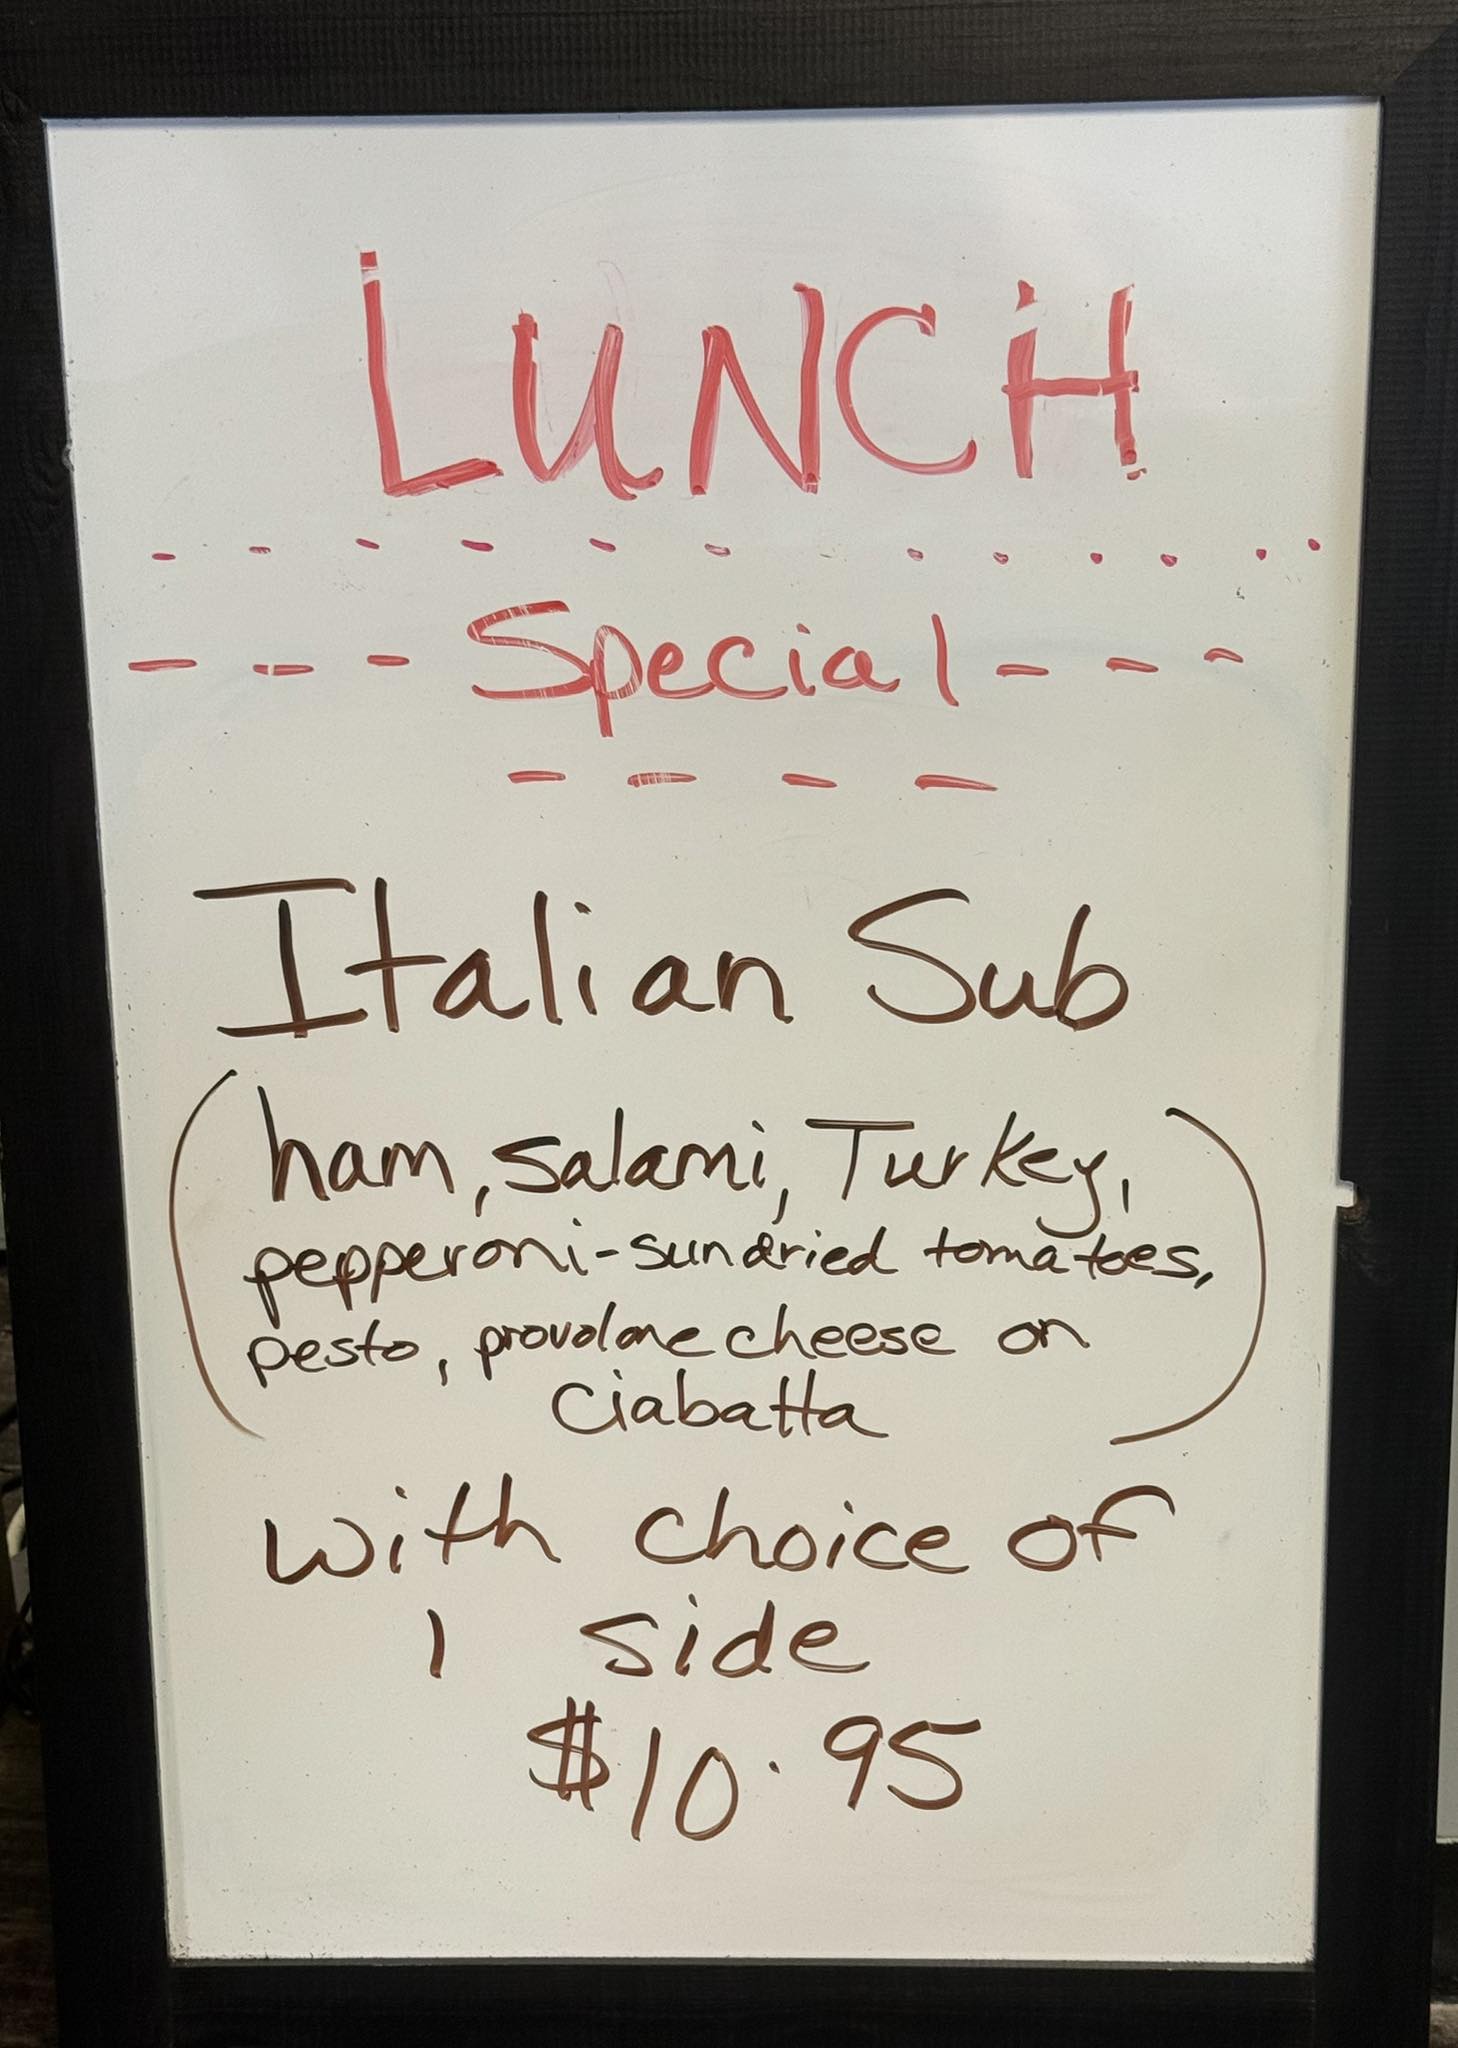 LUNCH
Special
Italian Sub
(ham, salami, Turkey,
pepperoni-sundried tomatoes,
pesto, provolone cheese on
ciabatta)
with choice of
1 side
$10.95